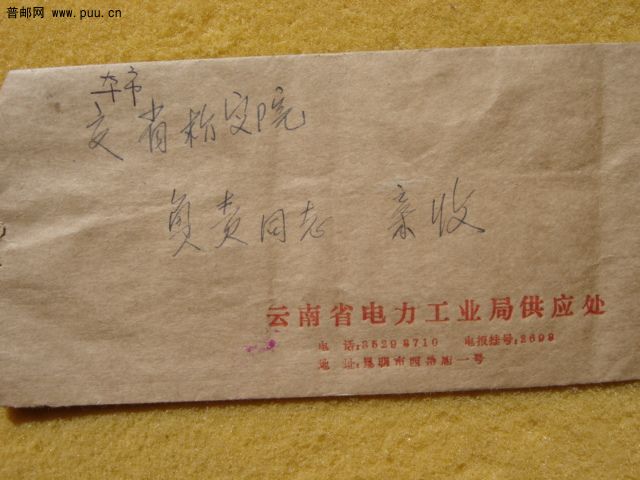 普邮网 www.puu.cn
本市
交 省检察院
负责同志 亲收
云南省电力工业局供应处
电 话:36298710 电报挂号:2698
地 址:昆明市西 一号